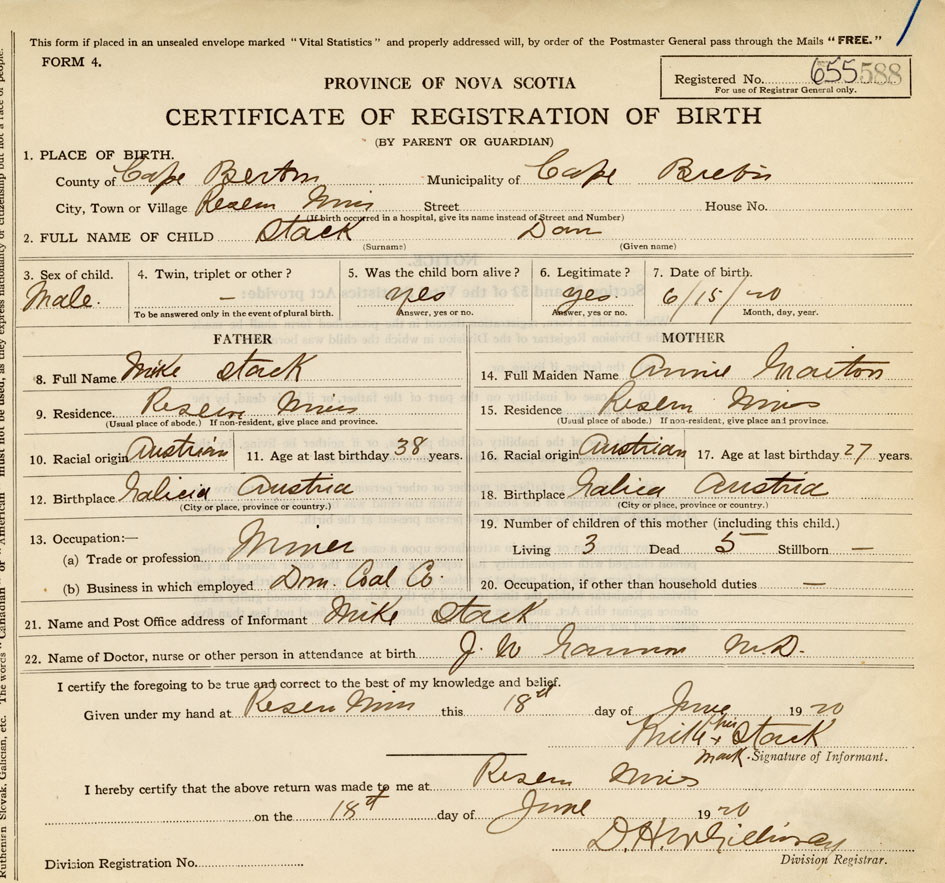 This form if placed in an unsealed envelope marked "Vital Statistics" and properly addressed will, by order of the Postmaster General pass through the Mails "FREE."
FORM 4.
Registered No. 655 588
For use of Registrar General only.
PROVINCE OF NOVA SCOTIA
CERTIFICATE OF REGISTRATION OF BIRTH
(BY PARENT OR GUARDIAN)
1. PLACE OF BIRTH.
County of Cape Berton Municipality of Cape Breton
City, Town or Village Resem Mines Street House No.
(If birth occurred in a hospital, give its name instead of Street and Number)
2. FULL NAME OF CHILD Stack Dan
(Surname) (Given name)
3. Sex of child. 4. Twin, triplet or other? 5. Was the child born alive? 6. Legitimate? 7. Date of birth.
Male. — yes yes. 6/15/20
To be answered only in the event of plural birth. Answer, yes or no. Answer, yes or no. Month, day, year.
FATHER MOTHER
8. Full Name Mike Stack 14. Full Maiden Name Annie
9. Residence. Resem Mines 15. Residence Resem Mines
(Usual place of abode.) If non-resident, give place and province. (Usual place of abode.) If non-resident, give place and province.
10. Racial origin Austrian 11. Age at last birthday 38 years. 16. Racial origin Austrian 17. Age at last birthday 27 years.
12. Birthplace Galicia Austria 18. Birthplace Galica Austria
(City or place, province or country.) (City or place, province or country.)
13. Occupation:— 19. Number of children of this mother (including this child.)
(a) Trade or profession Miner Living 3 Dead 5 Stillborn —
(b) Business in which employed Dom. Coal Co. 20. Occupation, if other than household duties —
21. Name and Post Office address of Informant Mike Stack
22. Name of Doctor, nurse or other person in attendance at birth J. W M.D.
I certify the foregoing to be true and correct to the best of my knowledge and belief.
Given under my hand at Resem Mines this 18th day of June 1920
Mike his x Stack
mark. Signature of Informant.
I hereby certify that the above return was made to me at Resem Mines
on the 18th day of June 1920
D. H. McGillivray
Division Registration No. Division Registrar.
Ruthenien Slovak, Galician, etc. The words "Canadian" or "American" must not be used, as they express nationality or citizenship but not a race of people.